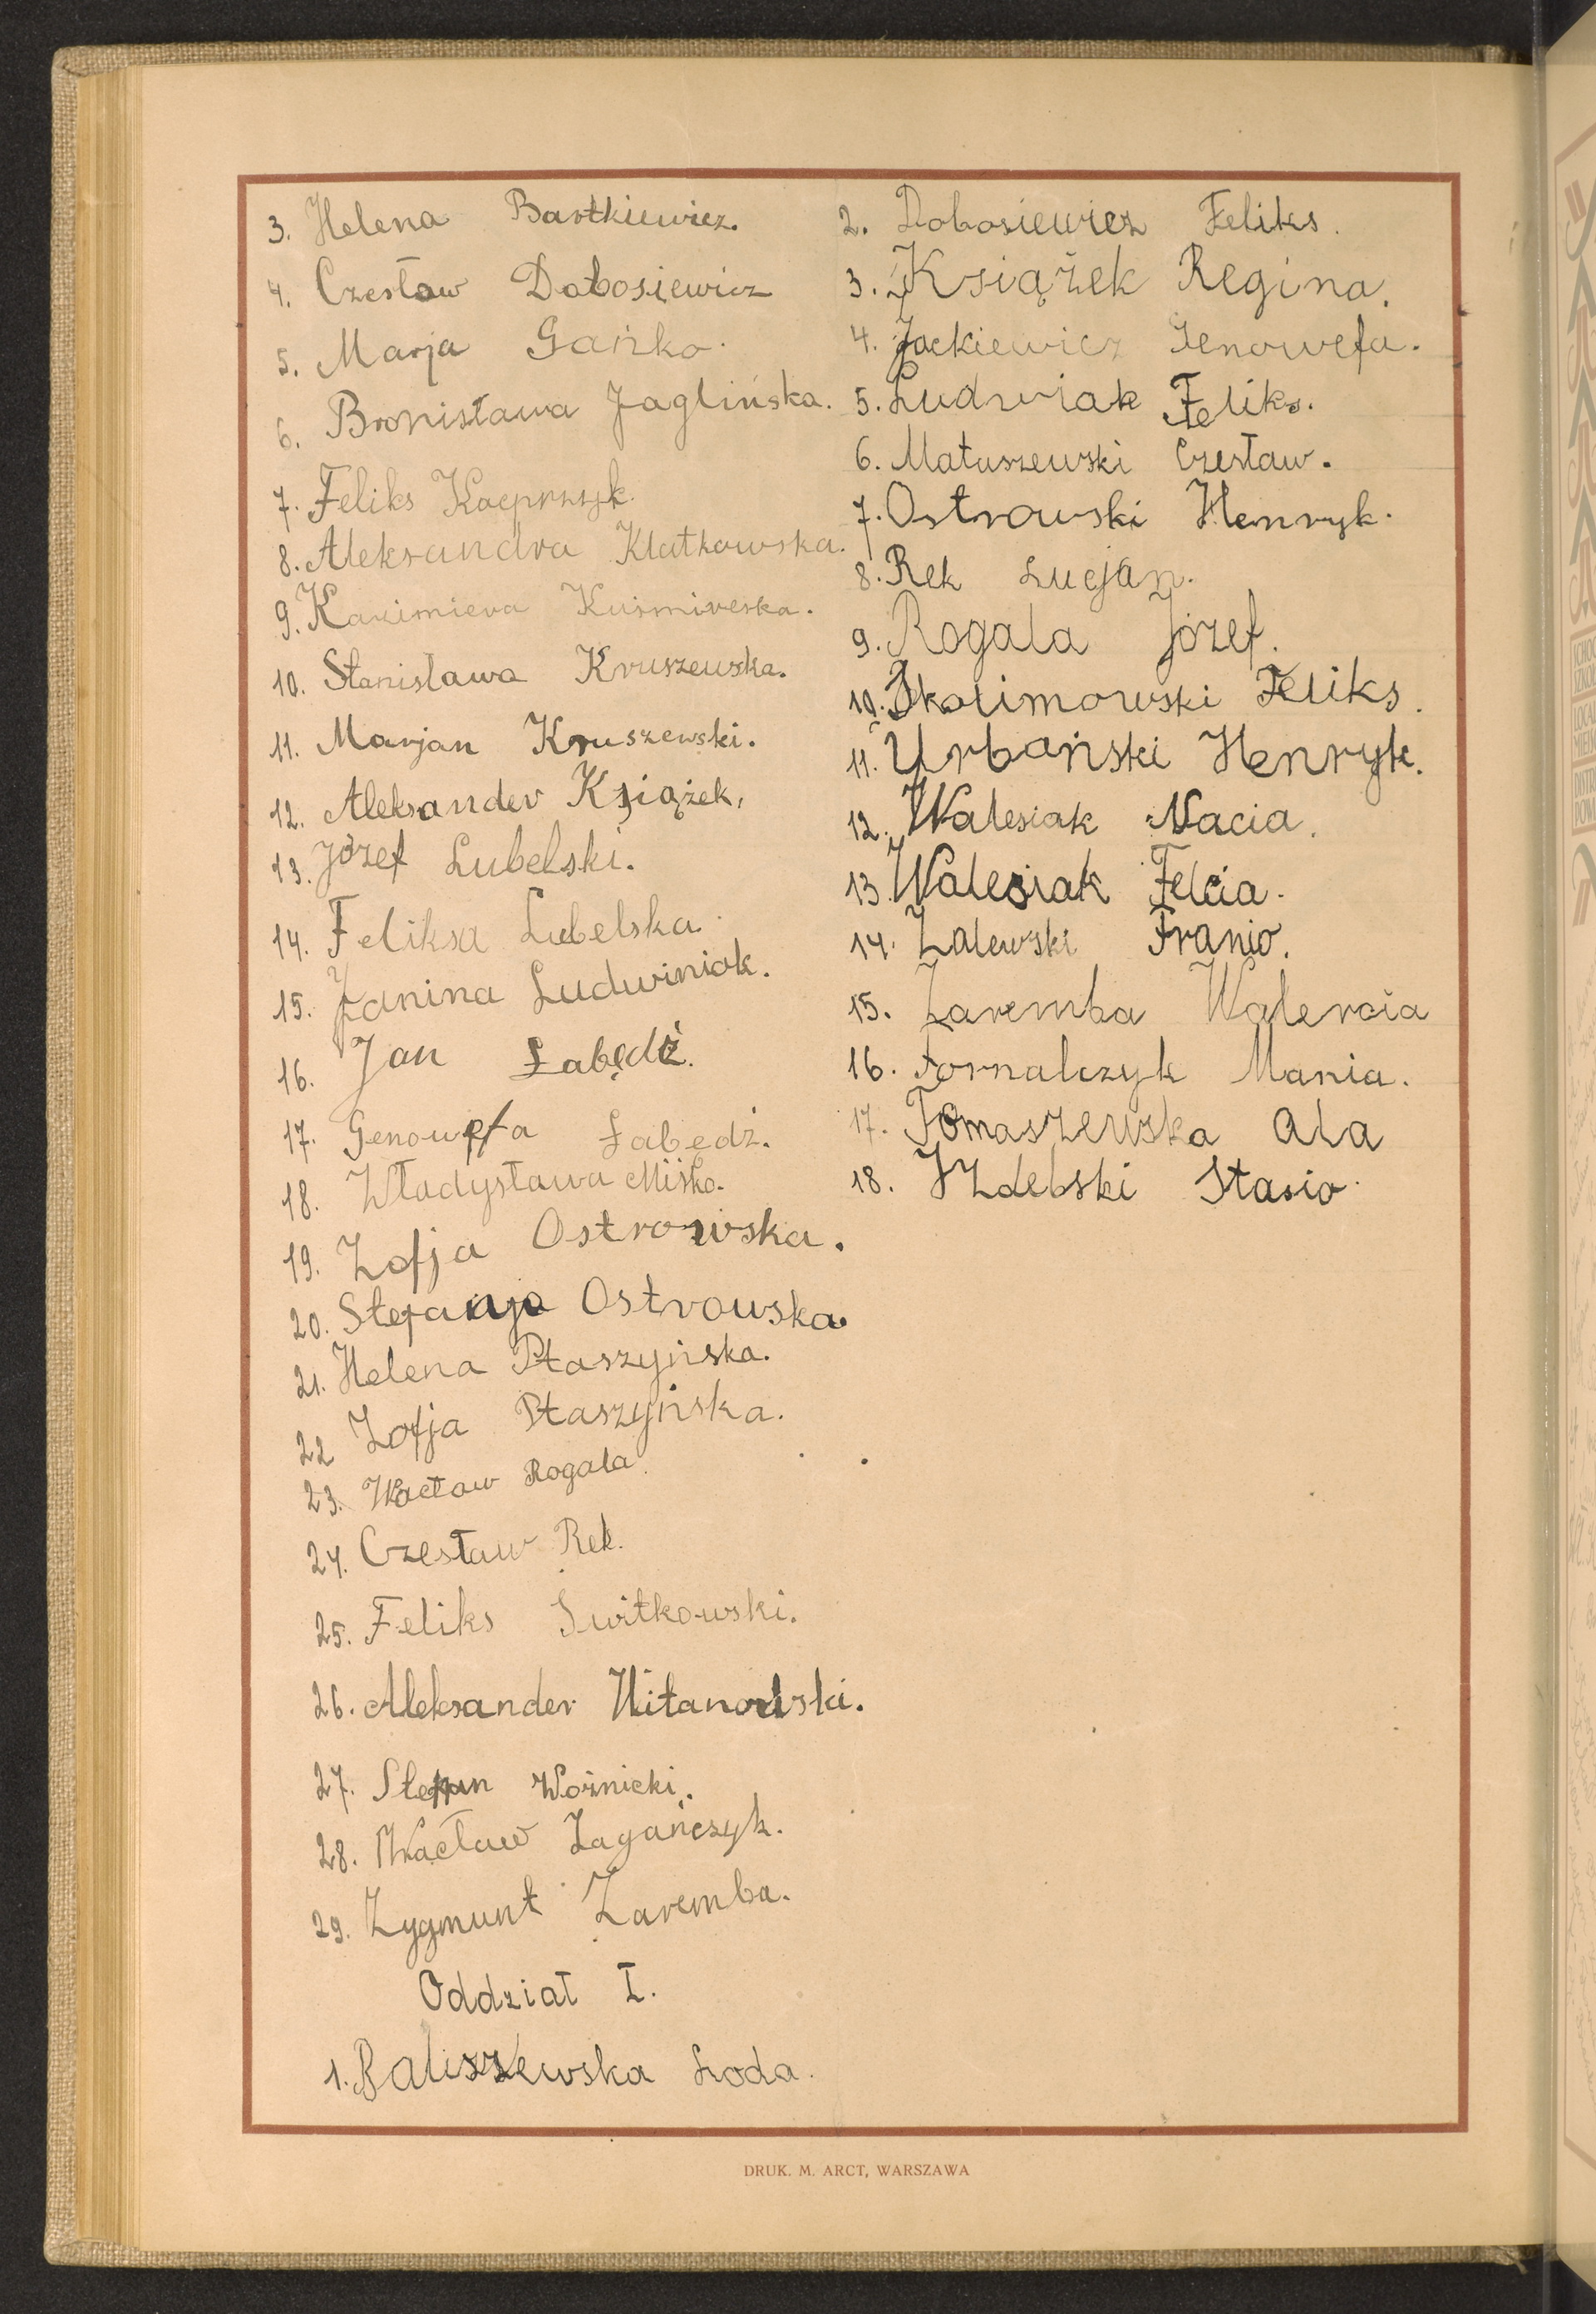 3. Helena Bartkiewicz.
4. Czesław Dobosiewicz
5. Marja Gańko.
6. Bronisława Jaglińska.
7. Feliks Kacprzyk.
8. Aleksandra Klatkowska.
9. Kazimiera Kuśmireska.
10. Stanisława Kruszewska.
11. Marjan Kruszewski.
12. Aleksander Książek.
13. Józef Lubelski.
14. Feliksa Lubelska.
15. Janina Ludwiniak.
16. Jan Łabędź.
17. Genowefa Łabędź.
18. Władysława Miśko.
19. Zofja Ostrowska.
20. Stefanja Ostrowska.
21. Helena Ptaszyńska.
22 Zofja Ptaszyńska.
23. Wacław Rogala.
24. Czesław Rek.
25. Feliks Switkowski.
26. Aleksander Witanowski.
27. Stefan Woźnicki.
28. Wacław Zagańczyk.
29. Zygmunt Zaremba.
Oddział I.
1. Baliszewska Loda.
2. Dobosiewicz Feliks.
3. Książek Regina.
4. Jackiewicz Genowefa.
5. Ludwiak Feliks.
6. Matuszewski Czesław.
7. Ostrowski Henryk.
8. Rek Lucjan.
9. Rogala Józef.
10. Skolimowski Feliks.
11. Urbański Henryk.
12. Walesiak Nacia.
13. Walesiak Felcia.
14. Zalewski Franio.
15. Zaremba Walercia
16. Fornalczyk Mania.
17. Tomaszewska Ala
18. Izdebski Stasio.
DRUK. M. ARCT, WARSZAWA